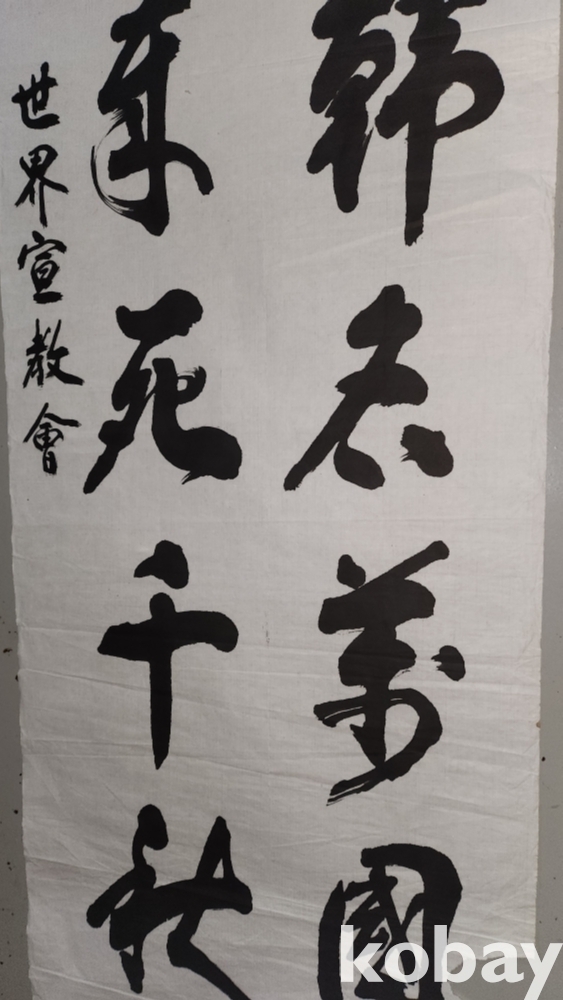 韓名萬國
死千秋
世界宣教會
kobay